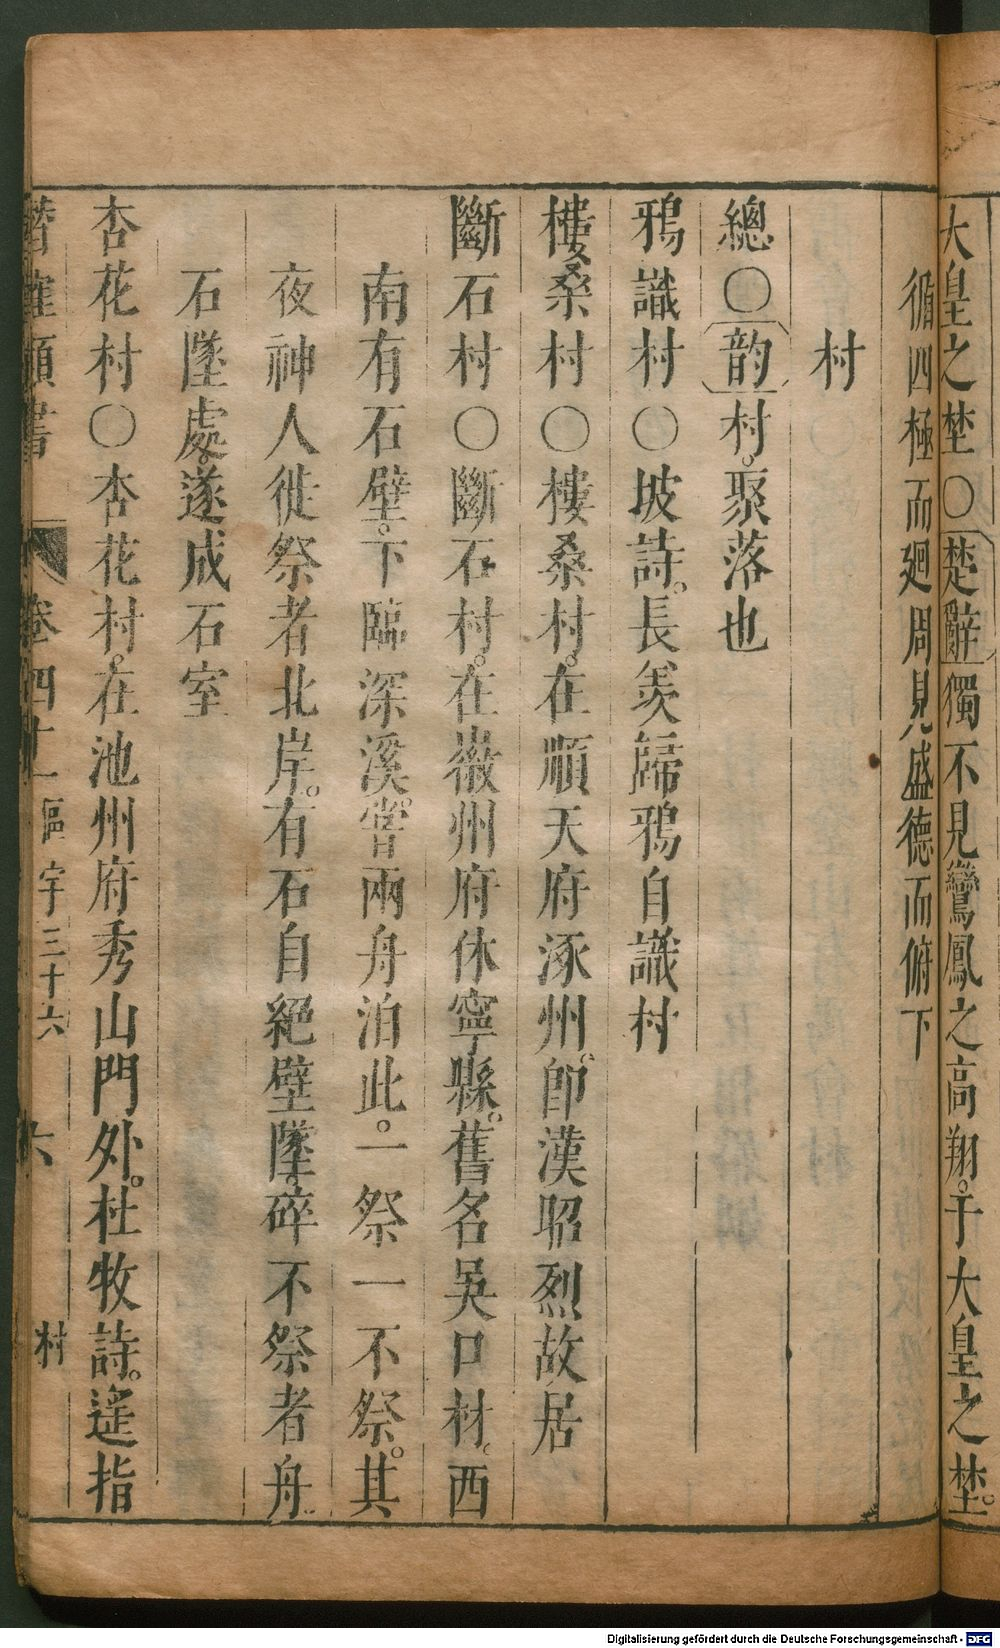 大皇之埜〇楚辭獨不見鸞鳳之高翔。于大皇之埜。
循四極而廻周見盛德而俯下
村
總〇韵村。聚落也
鴉識村〇坡詩。長羨歸鴉自識村
樓桑村〇樓桑村。在順天府涿州。卽漢昭烈故居
斷石村〇斷石村。在徽州府休寧縣。舊名吳口村。西
南有石壁。下臨深溪。嘗兩舟泊此。一祭一不祭。其
夜神人徙祭者北岸。有石自絕壁墜。碎不祭者舟
石墜處。遂成石室
杏花村〇杏花村。在池州府秀山門外。杜牧詩。遥指
潛確類書 卷四十一 區宇三十六 六 村
Digitalisierung gefördert durch die Deutsche Forschungsgemeinschaft - DFG